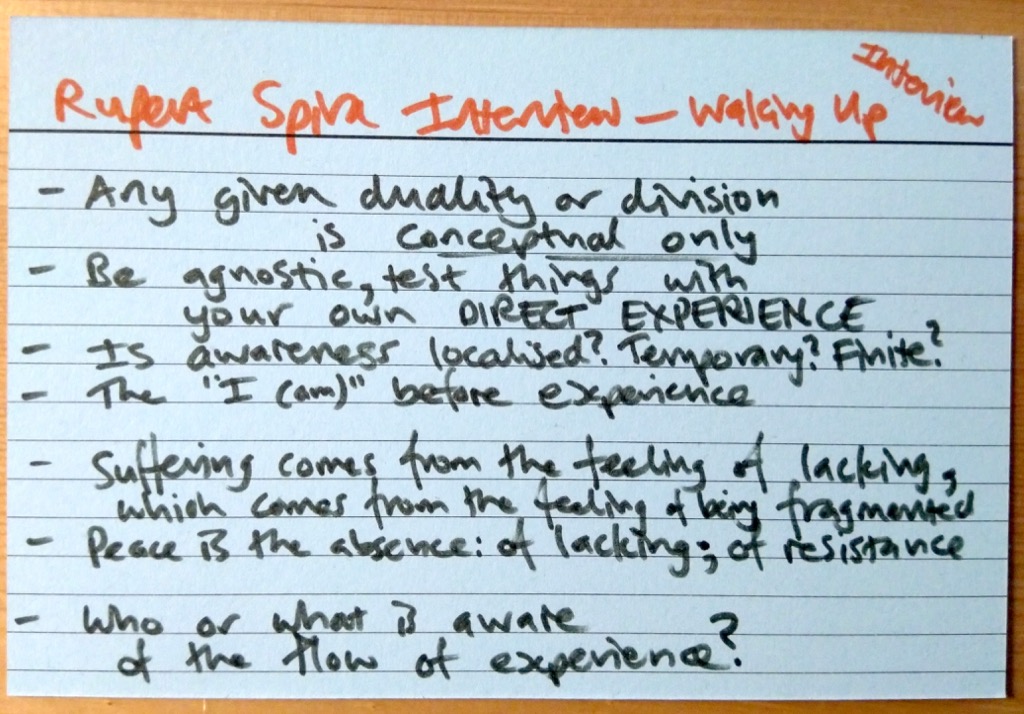 Interview
Rupert Spira Interview – Waking Up
- Any given duality or division
is conceptual only
- Be agnostic, test things with
your own DIRECT EXPERIENCE
- Is awareness localised? Temporary? Finite?
- The "I (am)" before experience
- Suffering comes from the feeling of lacking,
which comes from the feeling of being fragmented
- Peace is the absence: of lacking; of resistance
- Who or what is aware
of the flow of experience?